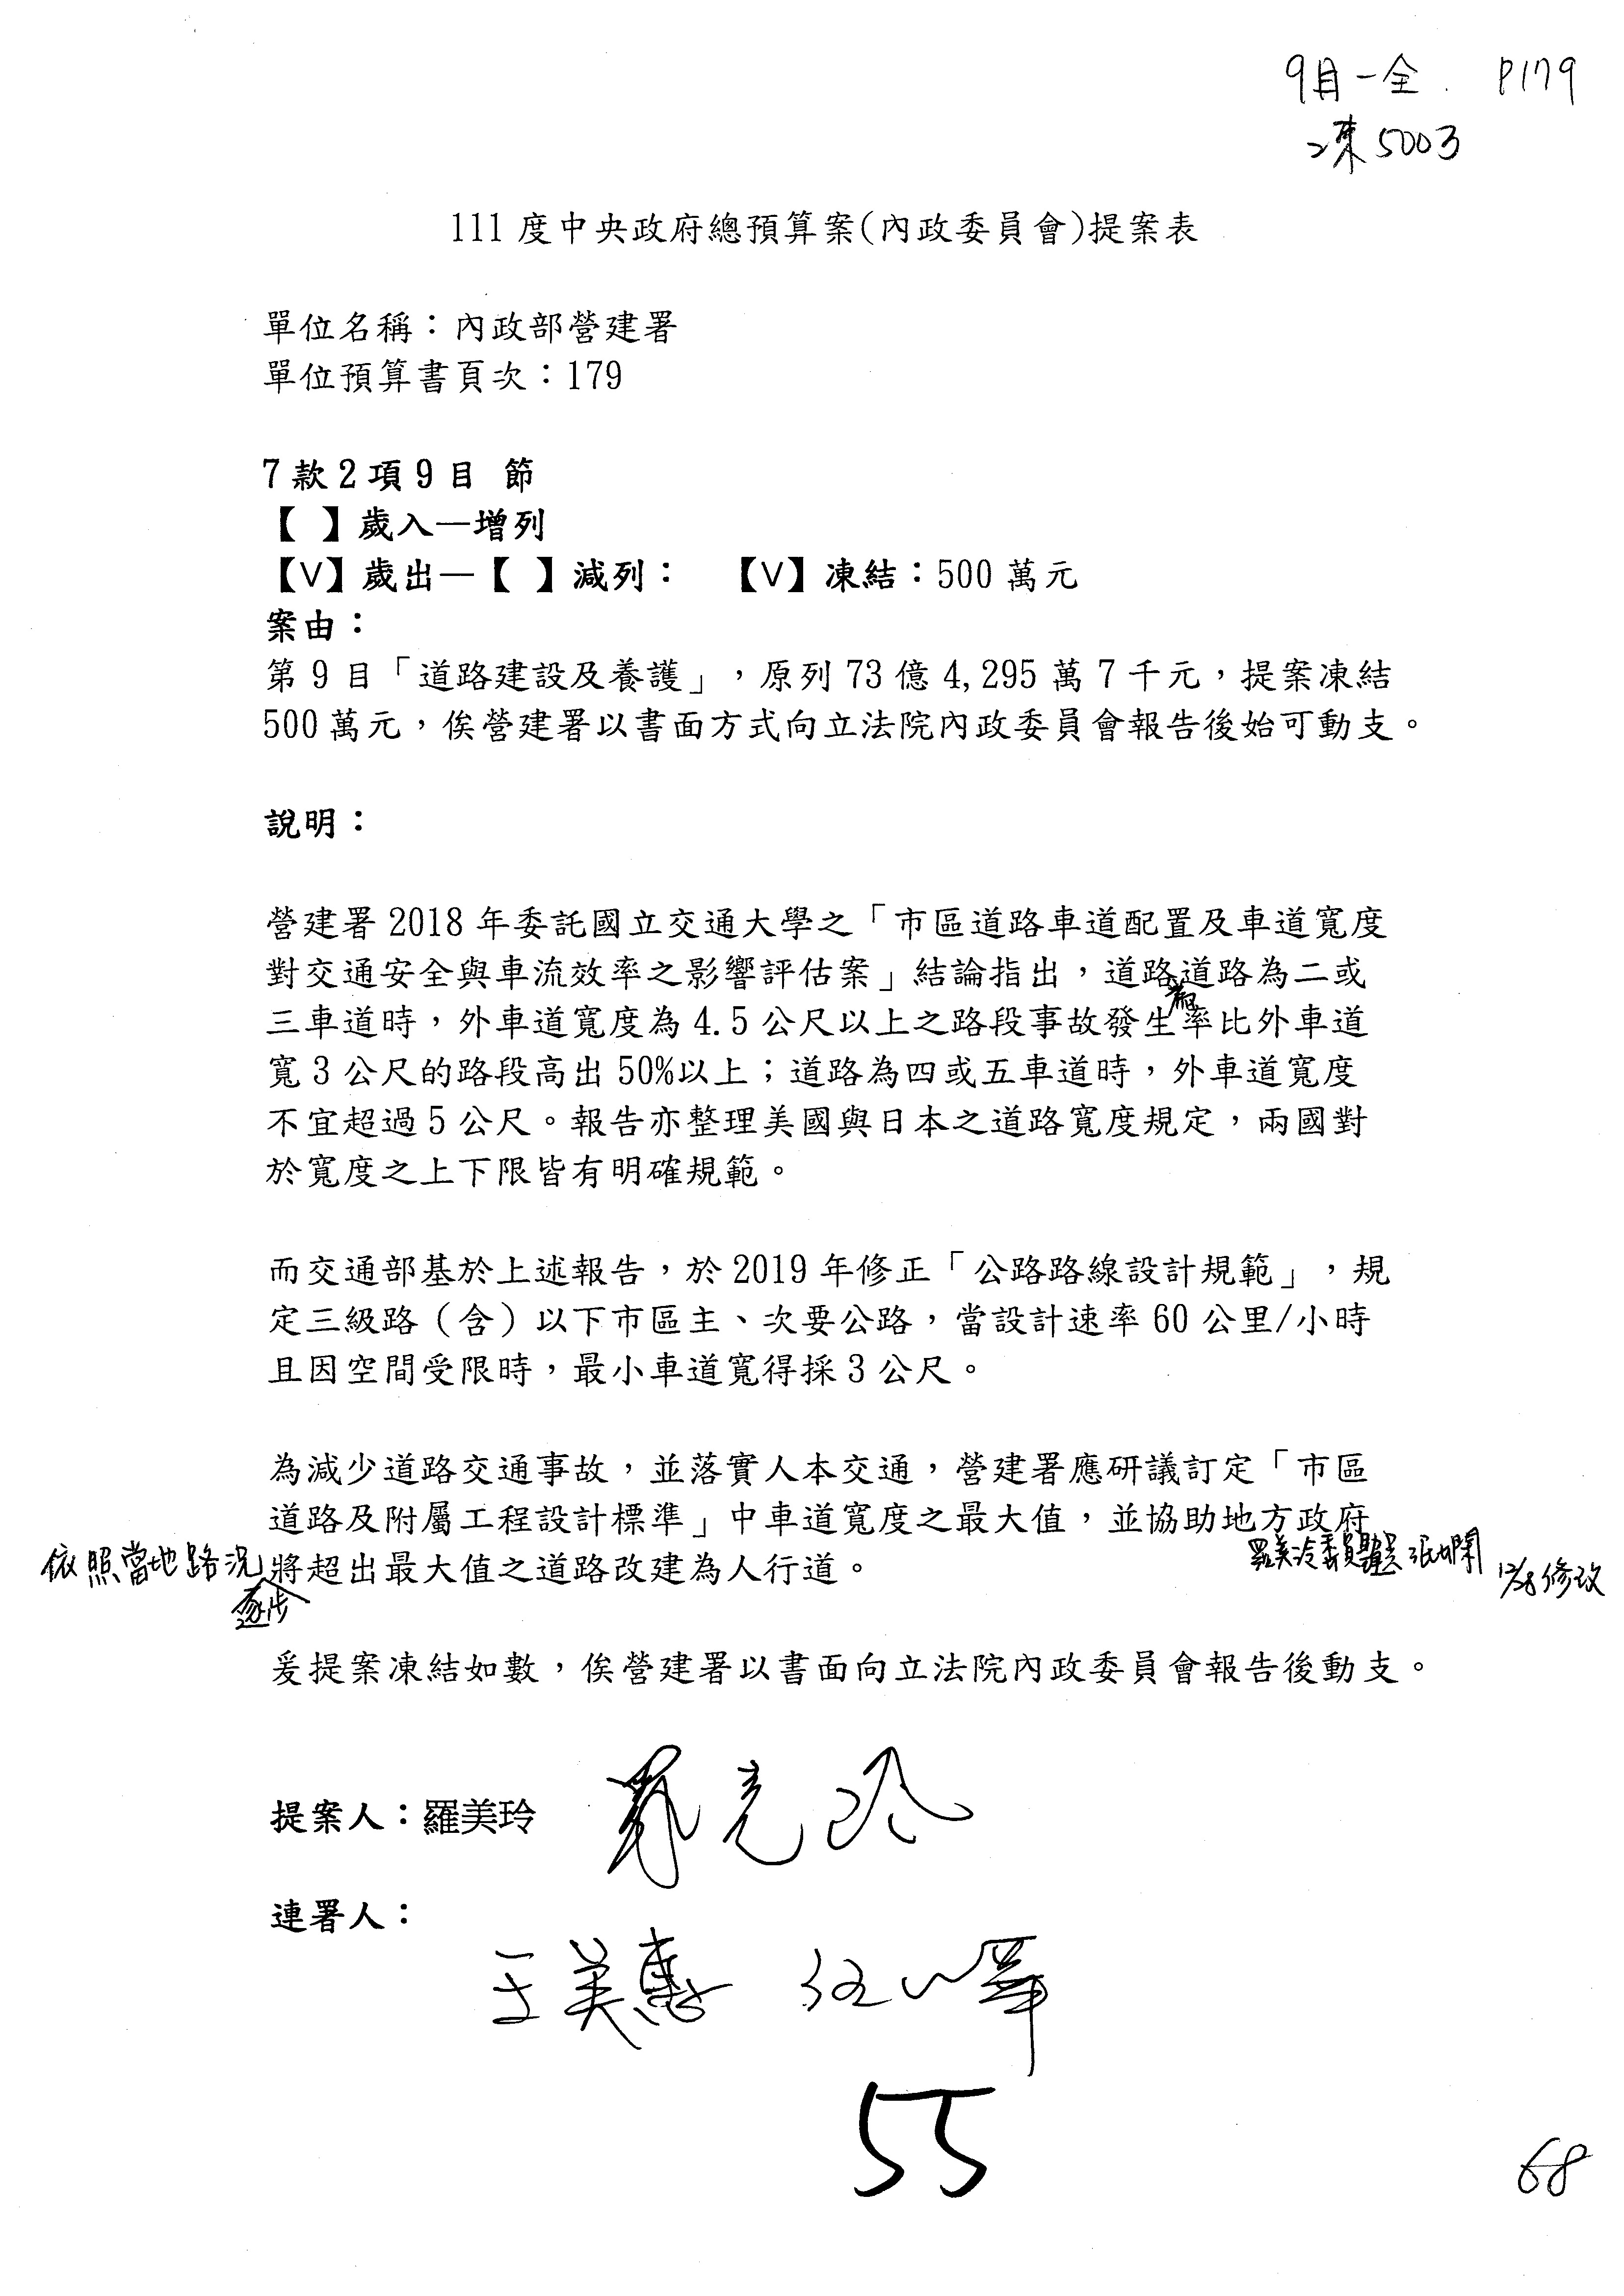 9目-全. P179
凍500万
111度中央政府總預算案(內政委員會)提案表
單位名稱：內政部營建署
單位預算書頁次：179
7款2項9目 節
【 】歲入—增列
【V】歲出—【 】減列： 【V】凍結：500萬元
案由：
第9目「道路建設及養護」，原列73億4,295萬7千元，提案凍結
500萬元，俟營建署以書面方式向立法院內政委員會報告後始可動支。
說明：
營建署2018年委託國立交通大學之「市區道路車道配置及車道寬度
對交通安全與車流效率之影響評估案」結論指出，道路道路為二或
三車道時，外車道寬度為4.5公尺以上之路段事故發生率比外車道
寬3公尺的路段高出50%以上；道路為四或五車道時，外車道寬度
不宜超過5公尺。報告亦整理美國與日本之道路寬度規定，兩國對
於寬度之上下限皆有明確規範。
而交通部基於上述報告，於2019年修正「公路路線設計規範」，規
定三級路（含）以下市區主、次要公路，當設計速率60公里/小時
且因空間受限時，最小車道寬得採3公尺。
為減少道路交通事故，並落實人本交通，營建署應研議訂定「市區
道路及附屬工程設計標準」中車道寬度之最大值，並協助地方政府
依照當地路況將超出最大值之道路改建為人行道。
逐步
羅美玲委員 12/8修改
爰提案凍結如數，俟營建署以書面向立法院內政委員會報告後動支。
提案人：羅美玲 羅美玲
連署人：
王美惠 伍
55
68